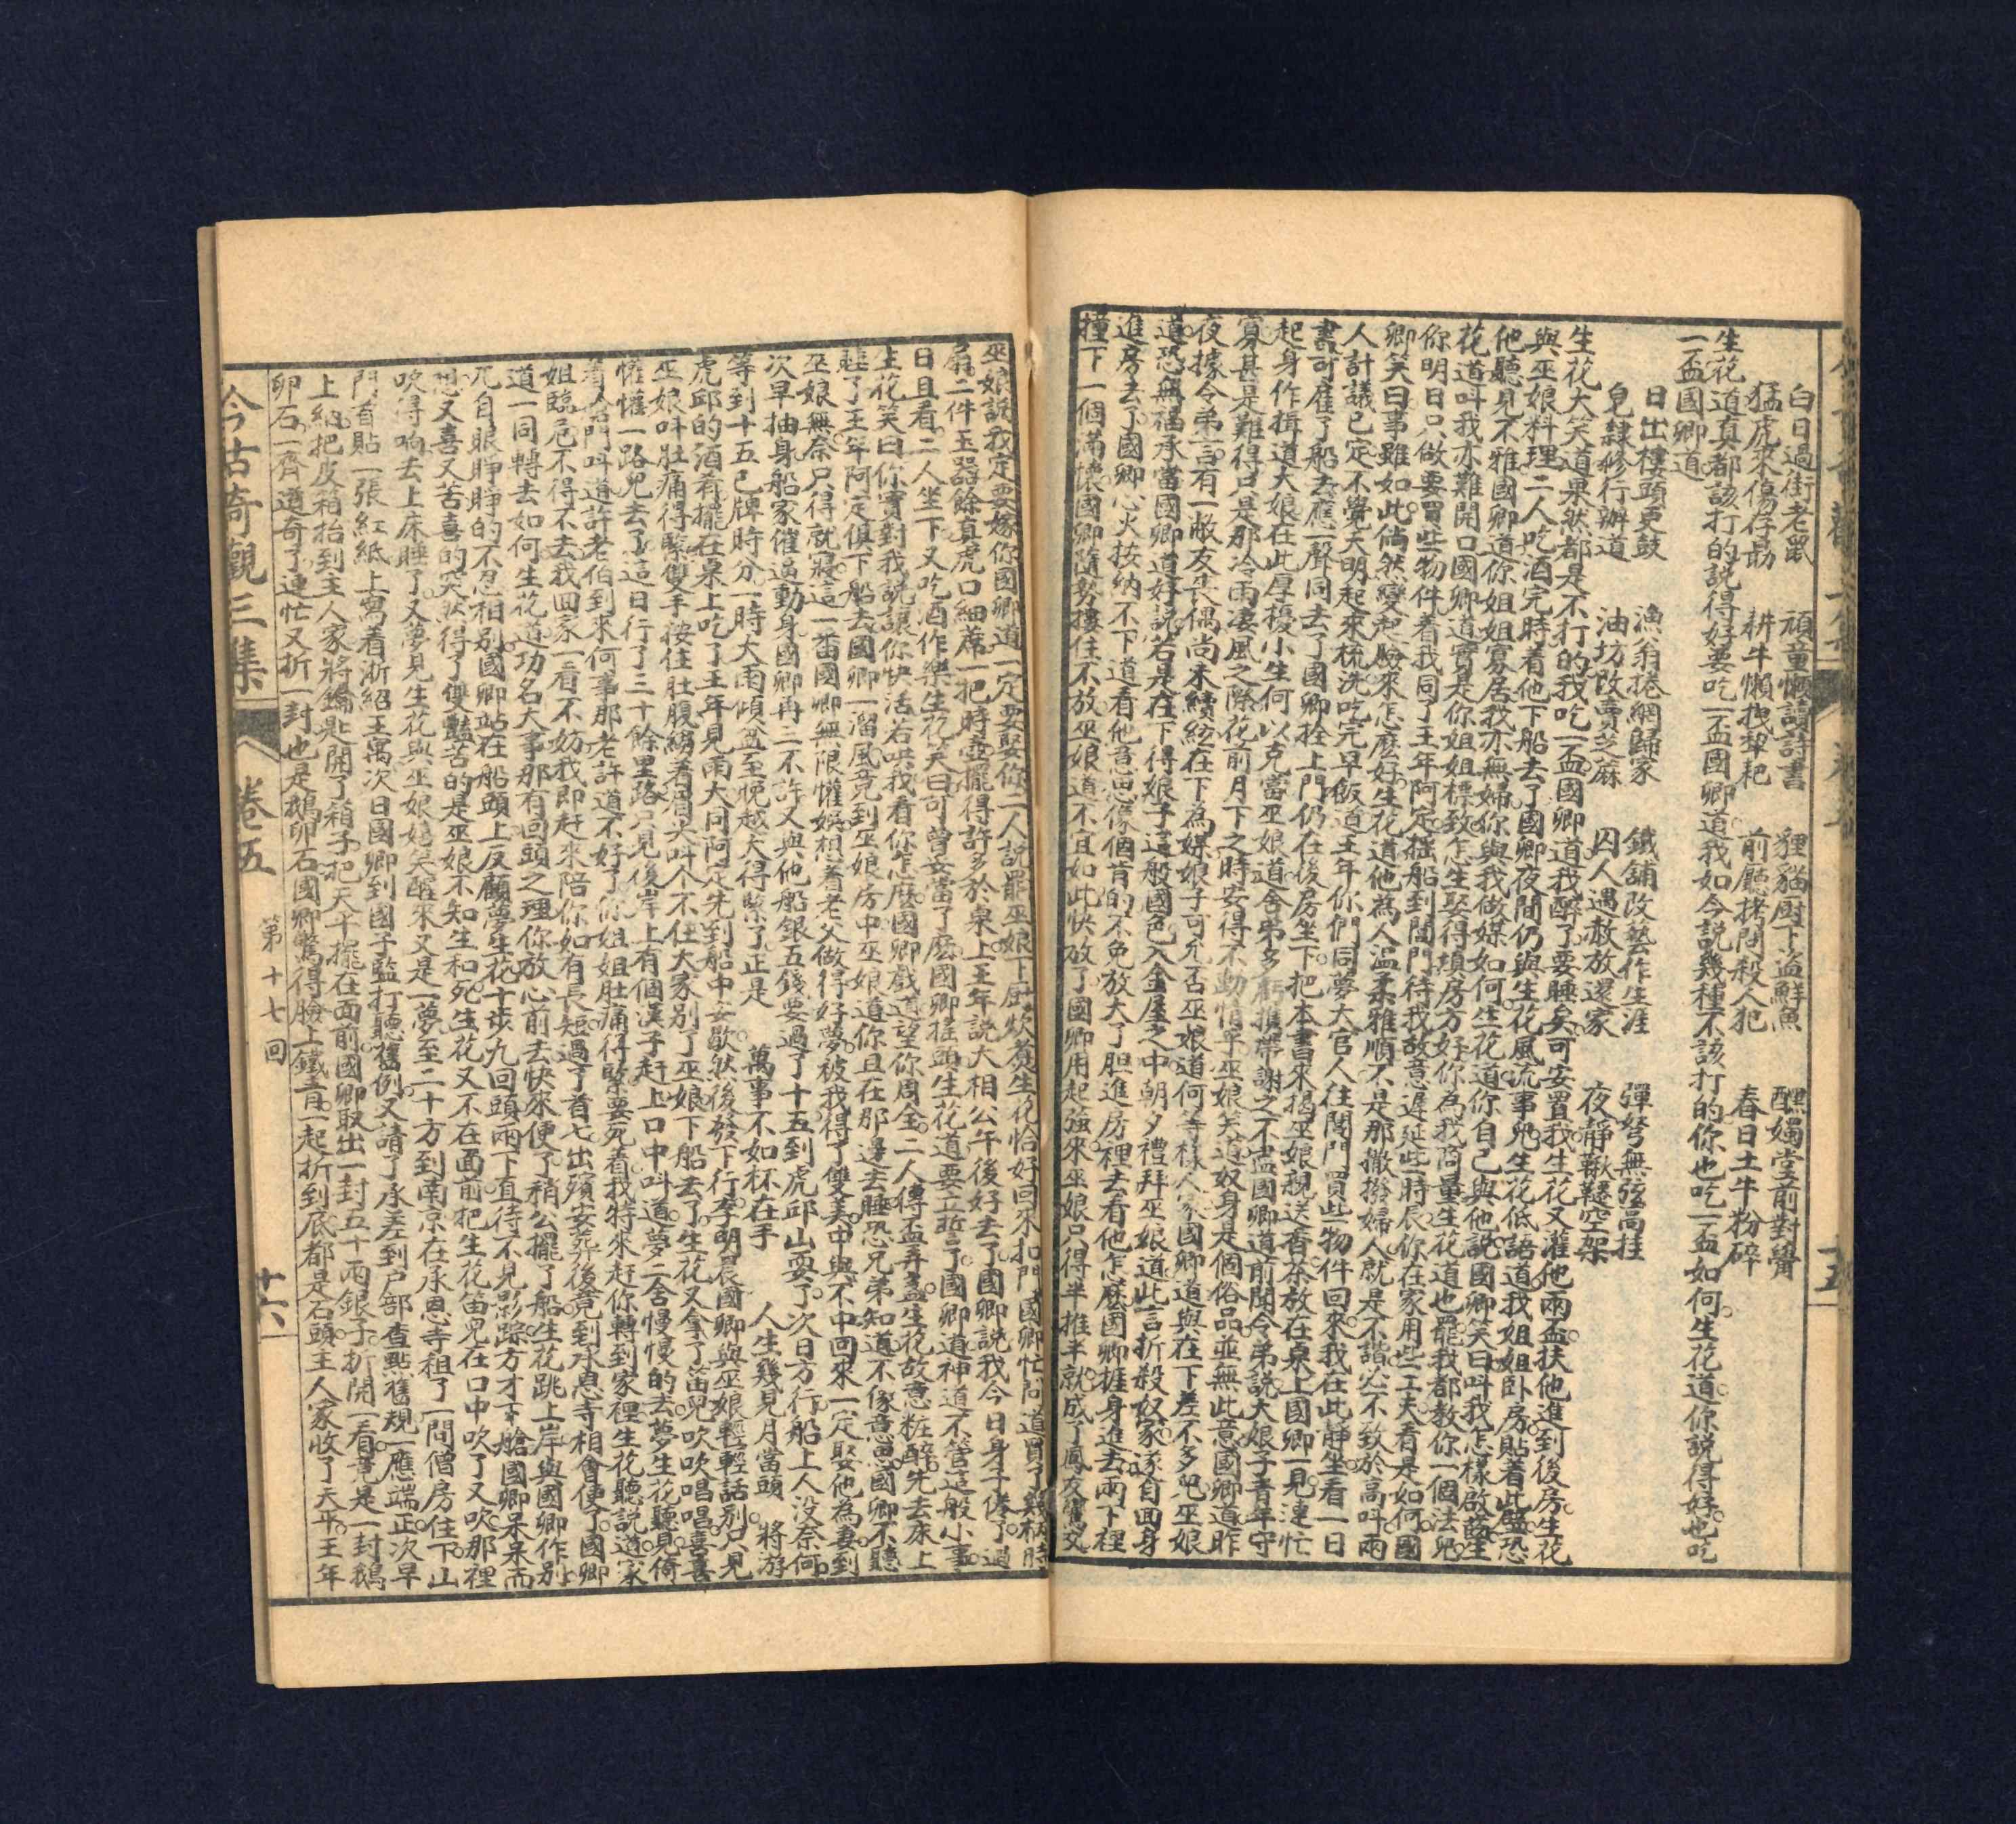 白日過街老鼠　頑童懶讀詩書　貍貓厨下盜鮮魚　醮燭堂前對

猛虎來傷存勗　耕牛懶拽犁耙　前廳拷問殺人犯　春日土牛粉碎
生花道真都該打的說得好要吃一盃國卿道我如今說幾種不該打的你也吃一盃如何生花道你說得好也吃
一盃國卿道
日出樓頭更鼓　漁翁捲網歸家　鐵舖改藝作生涯　彈弩無弦高挂
皂隸修行辦道　油坊改賣芝蔴　囚人遇赦放還家　夜靜鞦韆空架
生花大笑道果然都是不打的我吃一盃國卿道我醉了要睡矣可安置我生花又灌他兩盃扶他進到後房生花
與巫娘料理二人吃酒完時着他下船去了國卿夜間仍與生花風流事兒生花低語道我姐姐卧房貼着此壁恐
他聽見不雅國卿道你姐姐寡居我亦無婦你與我做媒如何生花道你自己與他說國卿笑曰叫我怎樣啟齒生
花道叫我亦難開口國卿道實是你姐姐標致怎生娶得填房方好你為我商量生花道也罷我都教你一個法兒
你明日只做要買些物件着我同了王年阿定摇船到閶門待我故意遲延些時辰你在家用些工夫看是如何國
卿笑曰事雖如此倘然變起臉來怎麼好生花道他為人溫柔雅順不是那撒撥婦人就是不諧必不致於高叫兩
人計議已定不覺天明起來梳洗吃完早飯道王年你們同夢大官人往閶門買些物件回來我在此靜坐看一日
書可雇了船去應一聲同去了國卿拴上門仍在後房坐下把本書來揭巫娘親送香茶放在桌上國卿一見連忙
起身作揖道大娘在此厚擾小生何以克當巫娘道舍弟多虧攜帶謝之不盡國卿道前聞令弟說大娘子青年守
寡甚是難得只是那冷雨淒風之際花前月下之時安得不動情乎巫娘笑道奴身是個俗品並無此意國卿道昨
夜據令弟言有一敝友喪偶尚未續絃在下為媒娘子可允否巫娘道何等樣人家國卿道與在下差不多兒巫娘
道恐無福承當國卿道好說若是在下得娘子這般國色入金屋之中朝夕禮拜巫娘道此言折殺奴家遂自回身
進房去了國卿心火按納不下道看他意思像個肯的不免放大了胆進房裡去看他怎麼國卿捱身進去兩下裡
撞下一個滿懷國卿隨勢摟住不放巫娘道不宜如此快放了國卿用起強來巫娘只得半推半就成了鳳友鸞交
巫娘說我定要嫁你國卿道一定要娶你二人說罷巫娘下厨炊煮生花恰好回來扣門國卿忙問道買了
扇二件玉器餘真虎口細蓆一把時壺擺得許多於桌上王年說大相公午後好去了國卿說我今日身子倦了過
日且看二人坐下又吃酒作樂生花笑曰可曾妥當了麼國卿搖頭生花道要立誓了國卿道神道不管這般小事
生花笑曰你實對我說讓你快活若哄我看你怎麼國卿戲道望你周全二人傳盃弄盞生花故意粧醉先去床上
睡了王年阿定俱下船去國卿一溜風竟到巫娘房中巫娘道你且在那邊去睡恐兄弟知道不像意思國卿不聽
巫娘無奈只得就寢這一番國卿無限懽娛想着老父做得好夢被我得了雙美中與不中回來一定娶他為妻到
次早抽身船家催逼動身國卿再二不許又與他船銀五錢要過了十五到虎邱山耍了次日方行船上人没奈何
等到十五已牌時分一時大雨傾盆至晚越大得緊了正是　萬事不如杯在手　人生幾見月當頭　將游
虎邱的酒肴擺在桌上吃了王年見雨大同阿定先到船中安歇然後發下行李明晨國卿與巫娘輕輕話別只見
巫娘叫肚痛得緊雙手按住肚腹縐着眉尖叫个不住大家別了巫娘下船去了生花又拿了笛兒吹吹唱唱喜喜
懽懽一路兒去了這日行了三十餘里路只見後岸上有個漢子赶上口中叫道夢二舍慢慢的去夢生花聽見倚
着艙門叫道許老伯到來何事那老許道不好了你姐姐肚痛得緊要死着我特來赶你轉到家裡生花聽說道家
姐臨危不得不去我回家一看不妨我即赶來陪你如有長短過了首七出殯安葬後竟到承恩寺相會便了國卿
道一同轉去如何生花道功名大事那有回頭之理你放心前去快來便了稍公擺了船生花跳上岸與國卿作別
兀自眼睜睜的不忍相別國卿站在船頭上反顧夢生花十步九回頭兩下直待不見影踪方才下艙國卿呆呆而
想又喜又苦喜的突然得了雙豔苦的是巫娘不知生和死生花又不在面前把生花笛兒在口中吹了又吹那裡
吹得响去上床睡了又夢見生花與巫娘嬉笑醒來又是一夢至二十方到南京在承恩寺租了一間僧房住下山
門首貼一張紅紙上寫着浙紹王寓次日國卿到國子監打聽舊例又請了承差到戸部查點舊規一應端正次早
上納把皮箱抬到主人家將鑰匙開了箱子把天平擺在面前國卿取出一封五十兩銀子折開一看竟是一封鵝
卵石一齊道奇了連忙又折一封也是鵝卵石國卿驚得臉上鐵青一起折到底都是石頭主人家收了天平王年
今古奇觀三集　卷五　第十七回　廿六